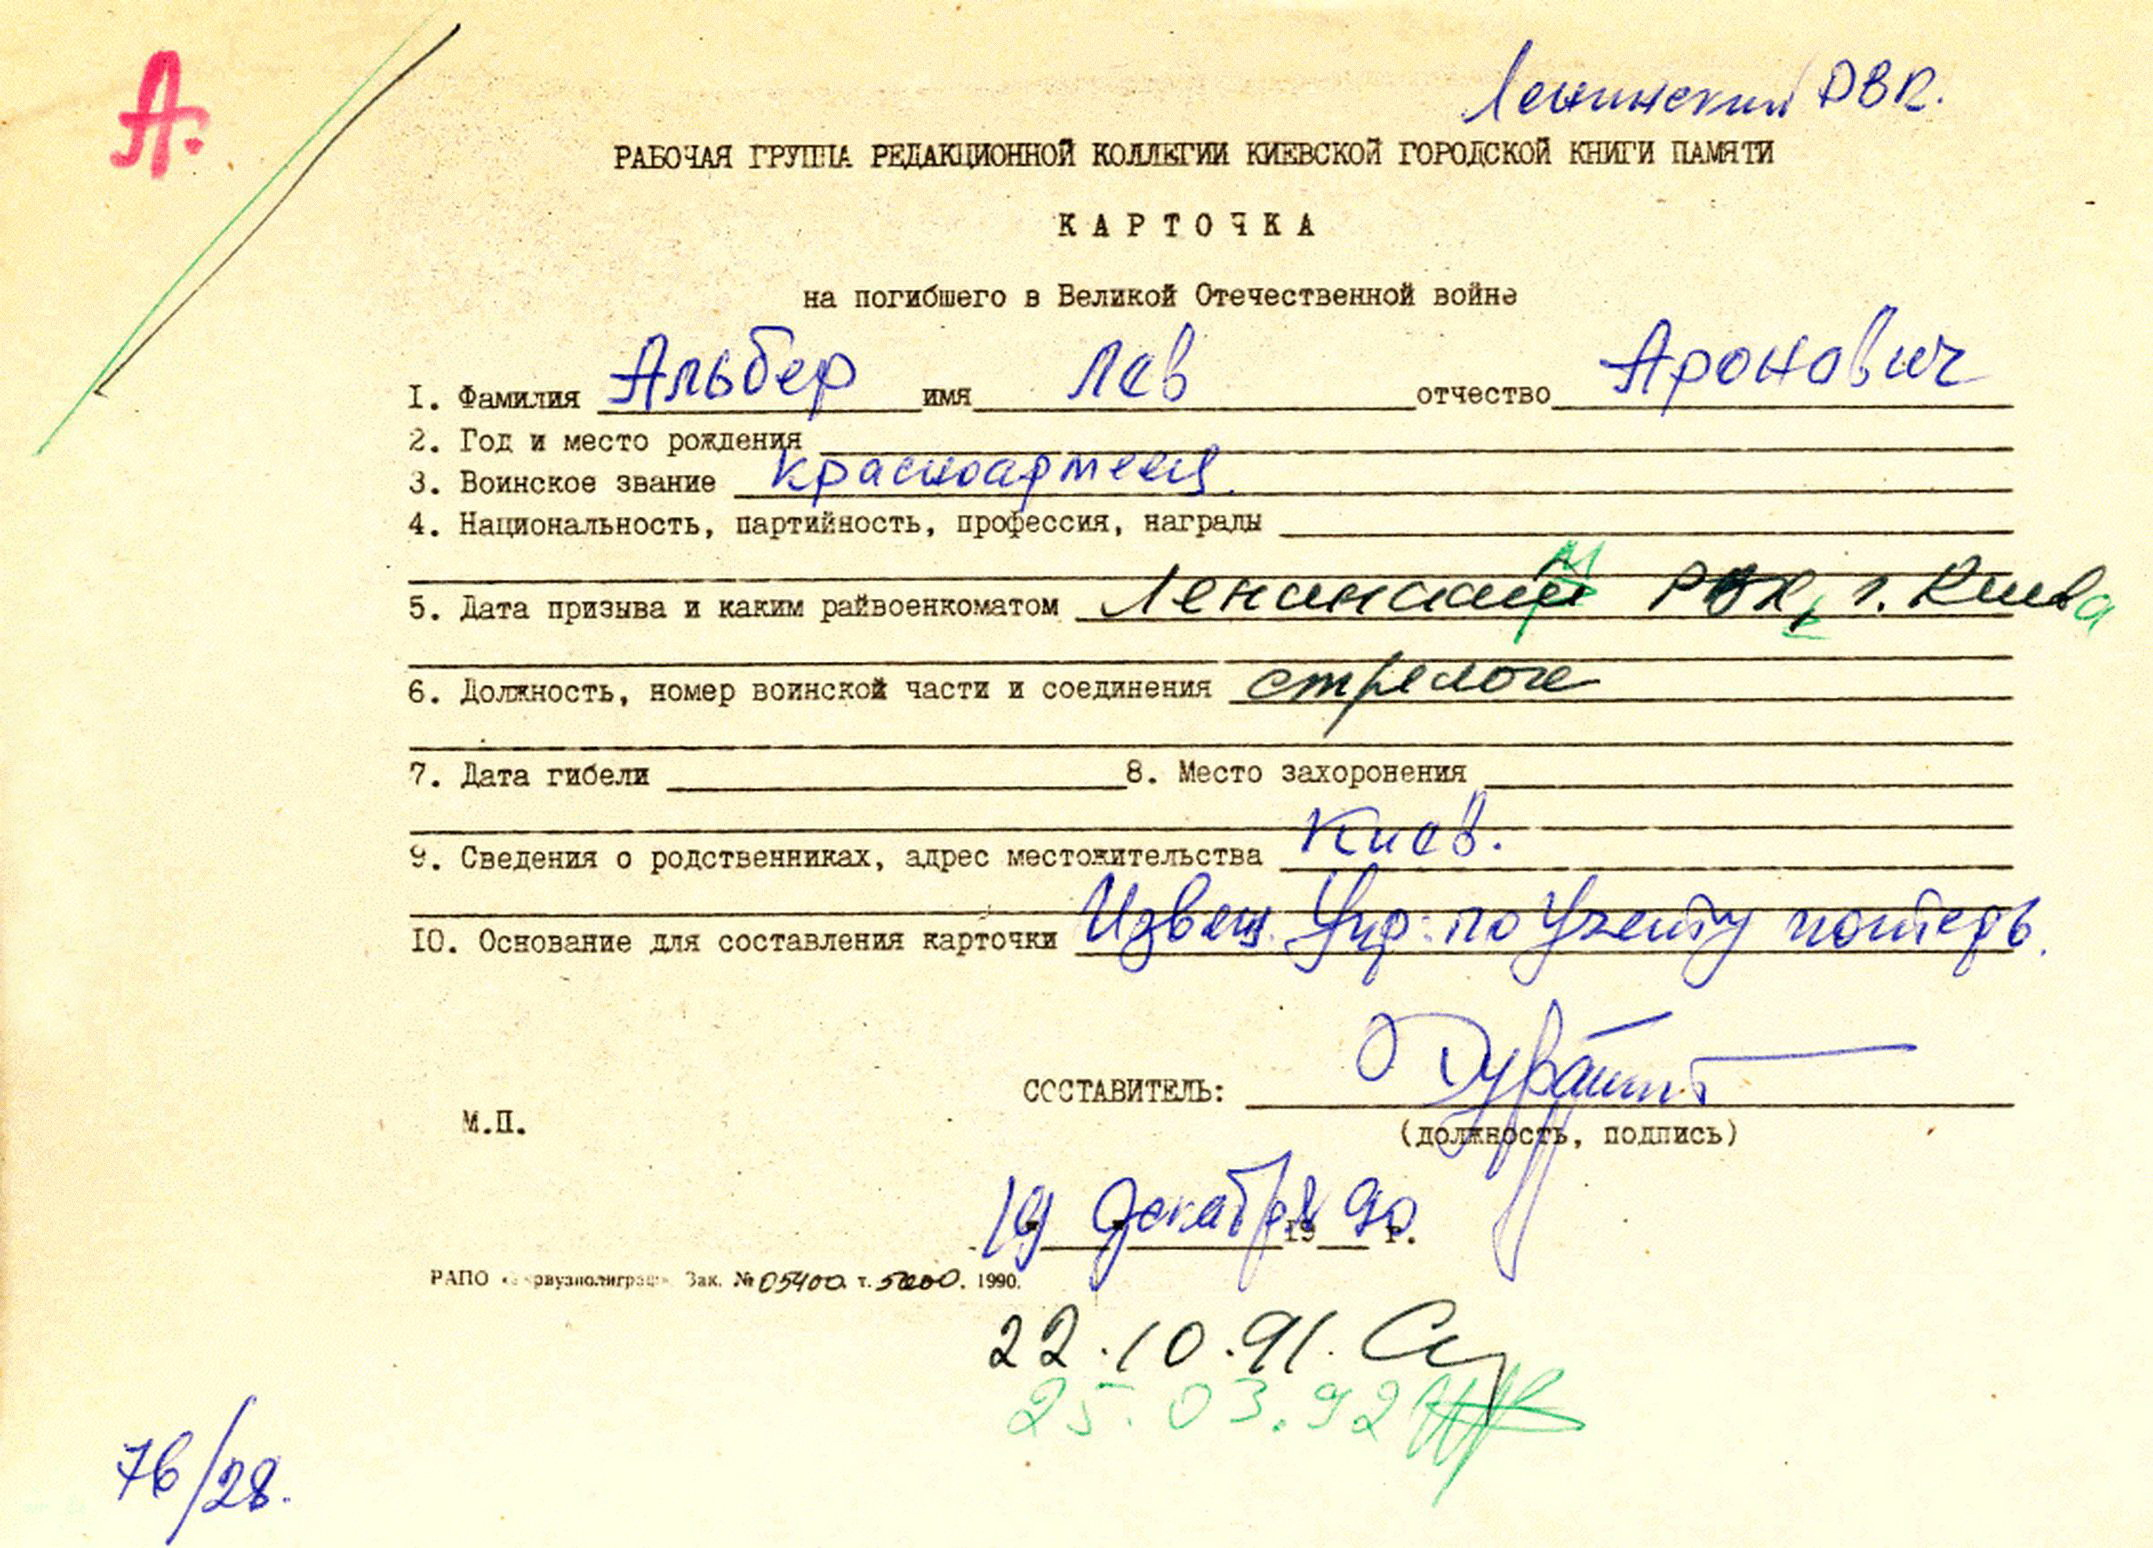 А.
Ленинский РВК.
РАБОЧАЯ ГРУППА РЕДАКЦИОННОЙ КОЛЛЕГИИ КИЕВСКОЙ ГОРОДСКОЙ КНИГИ ПАМЯТИ
КАРТОЧКА
на погибшего в Великой Отечественной войне
1. Фамилия Альбер имя Лев отчество Аронович
2. Год и место рождения
3. Воинское звание красноармеец.
4. Национальность, партийность, профессия, награды
5. Дата призыва и каким райвоенкоматом Ленинский РВК, г. Киева
6. Должность, номер воинской части и соединения стрелок
7. Дата гибели 8. Место захоронения
9. Сведения о родственниках, адрес местожительства Киев.
10. Основание для составления карточки Извещ. Упр. по учету потерь.
СОСТАВИТЕЛЬ:
М.П.
(должность, подпись)
19 декабря 1990 г.
РАПО Зак. № 05400 т. 5000. 1990.
22.10.91.
25.03.92
76/28.